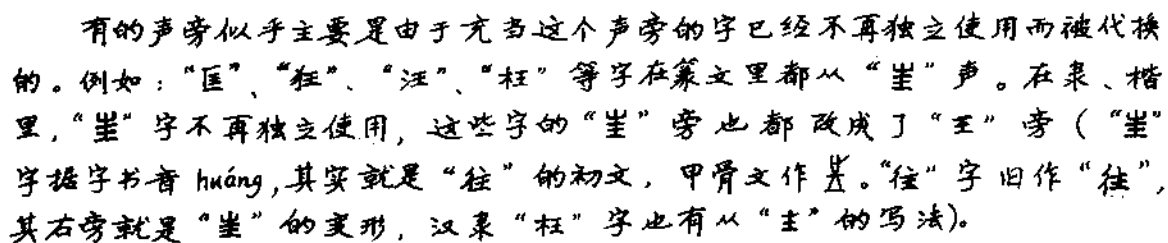 有的声旁似乎主要是由于充当这个声旁的字已经不再独立使用而被代换
的。例如：“匡”、“狂”、“汪”、“枉”等字在篆文里都从“㞷”声。在隶、楷
里，“㞷”字不再独立使用，这些字的“㞷”旁也都改成了“王”旁（“㞷”
字据字书音huáng，其实就是“往”的初文，甲骨文作。“往”字旧作“徃”，
其右旁就是“㞷”的变形，汉隶“枉”字也有从“主”的写法）。